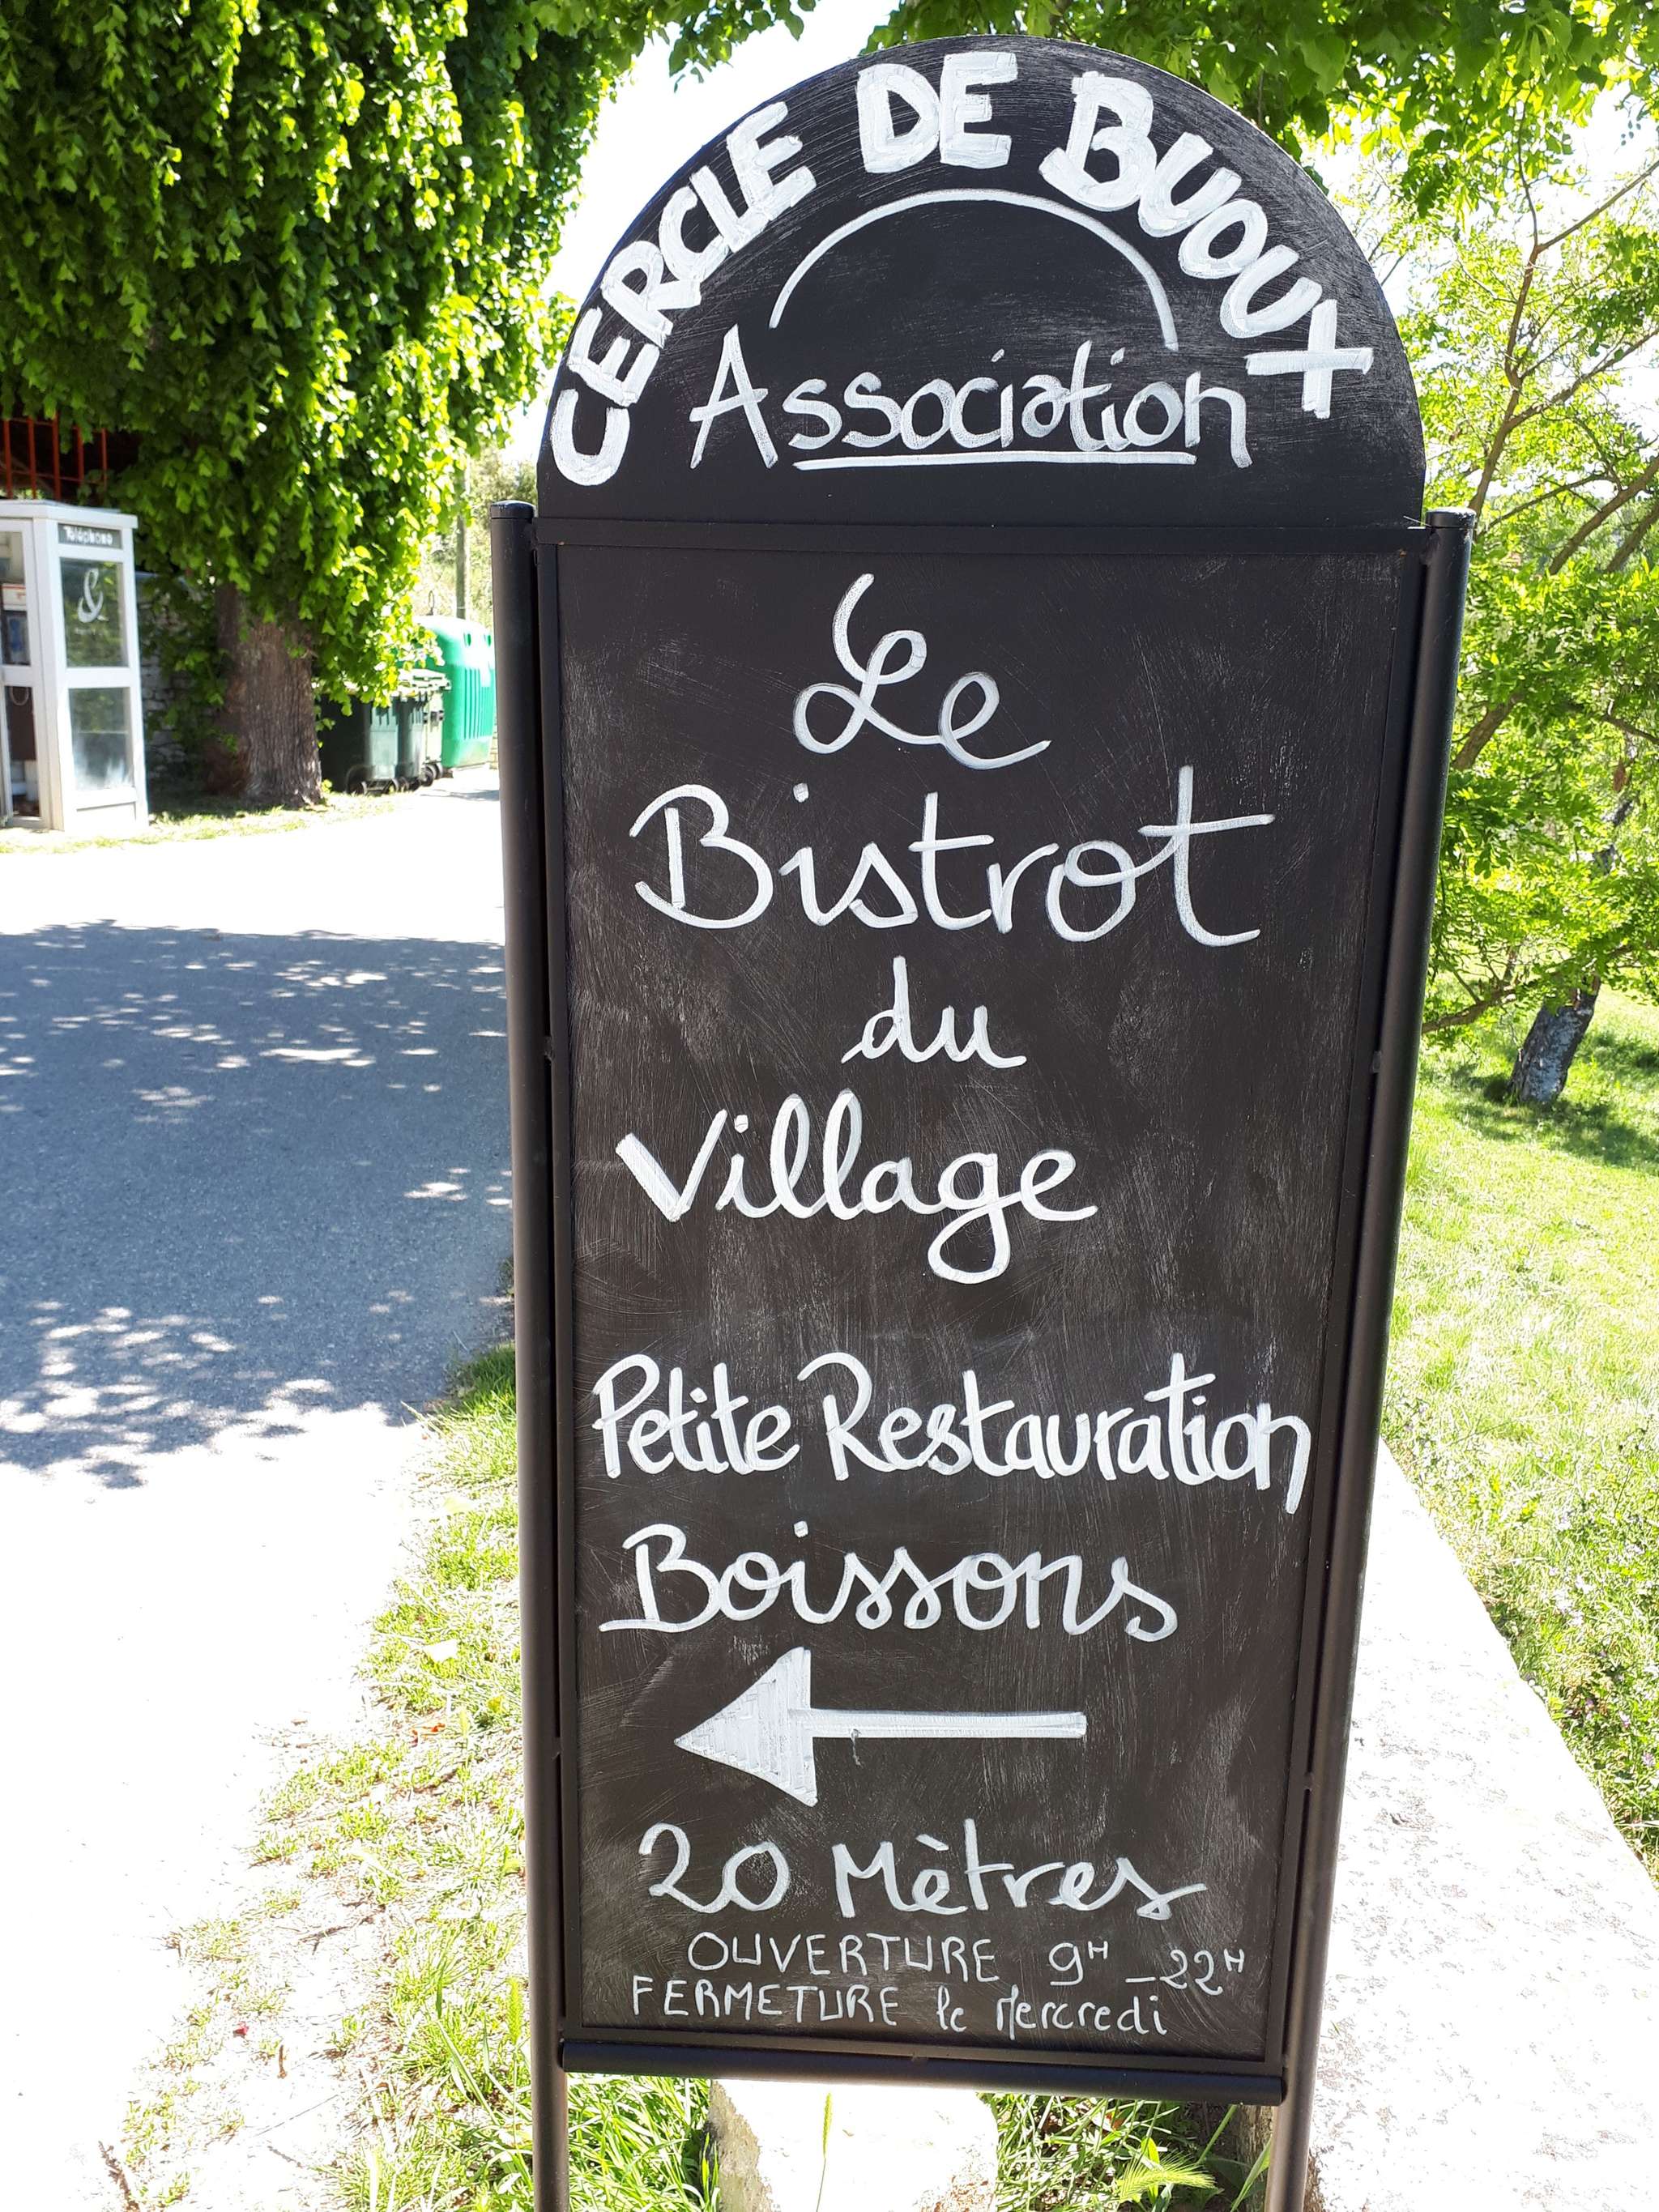 CERCLE DE BUOUX
Association
Le
Bistrot
du
Village
Petite Restauration
Boissons
20 Mètres
OUVERTURE 9H _ 22H
FERMETURE le Mercredi
Téléphone
&